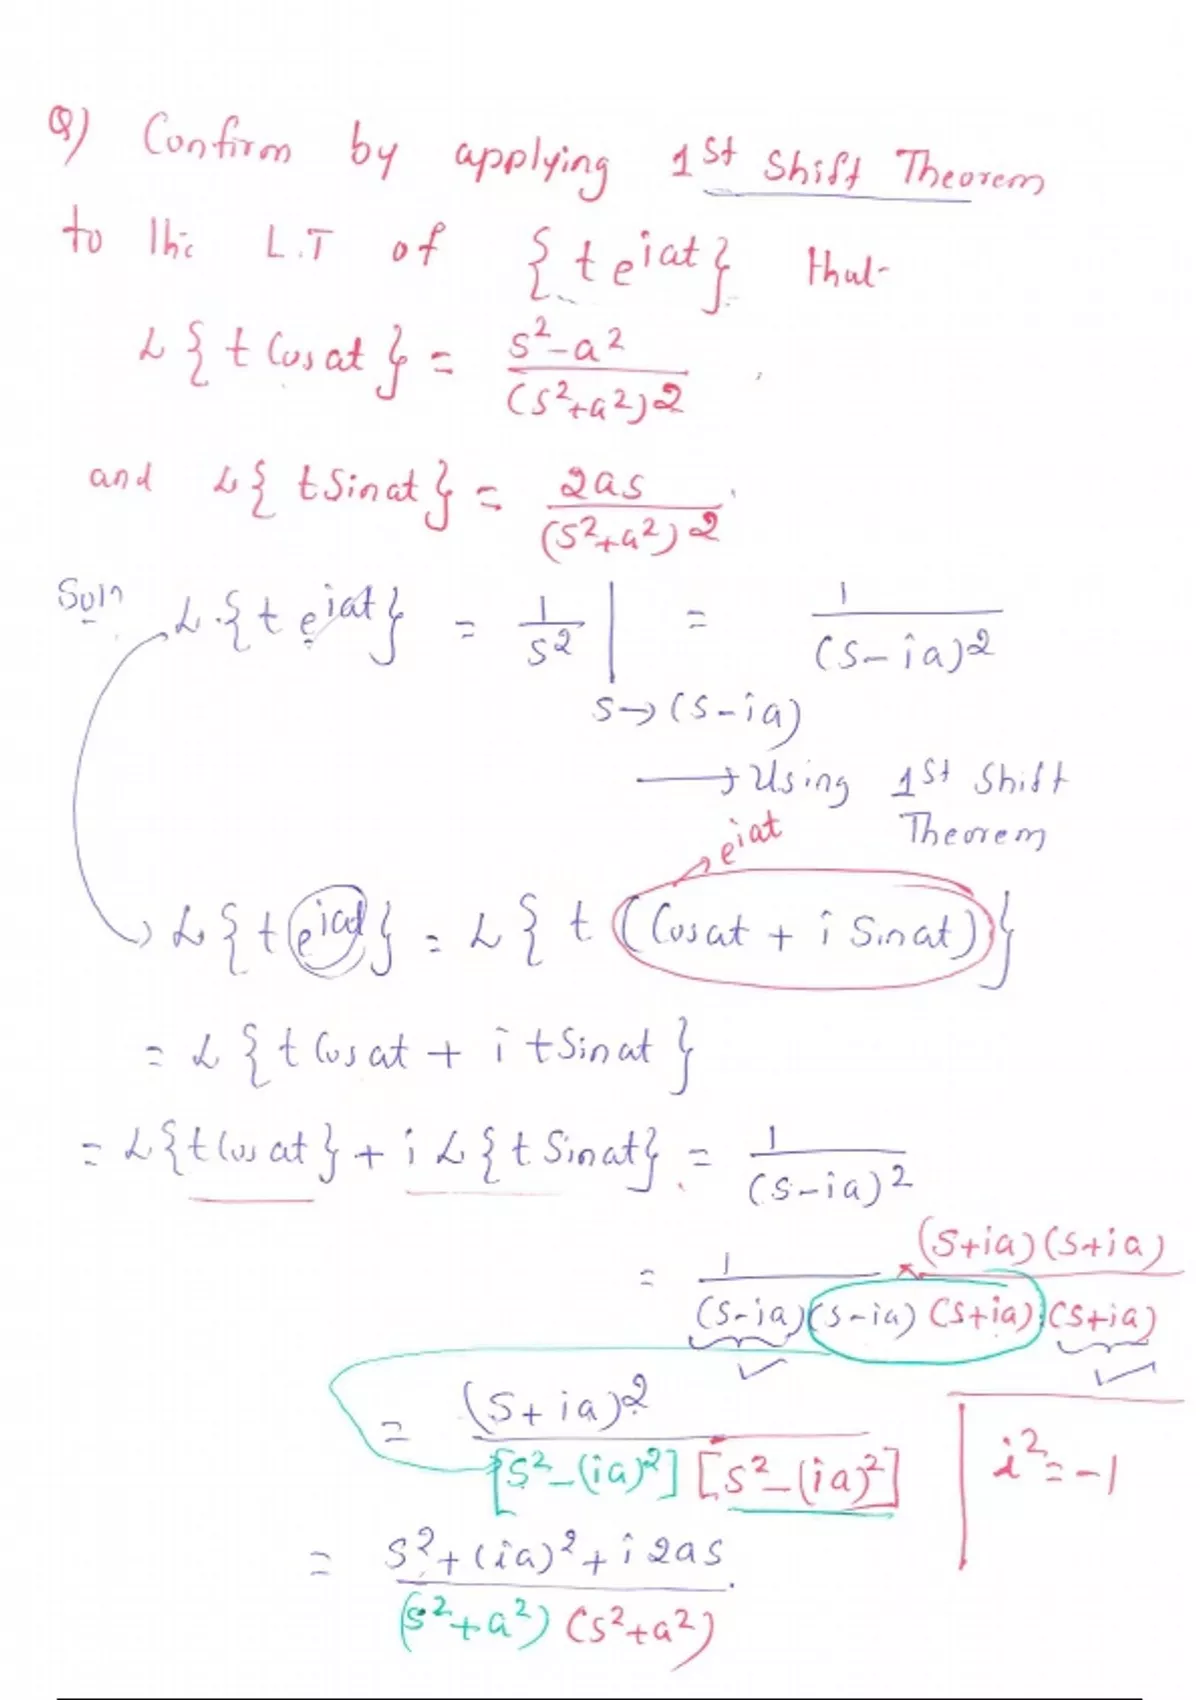 Q) Confirm by applying 1st Shift Theorem
to the L.T of {t e^{iat}} that
L{t Cos at} = (s²-a²)/(s²+a²)²
and L{t Sin at} = 2as/(s²+a²)²
Soln L{t e^{iat}} = 1/s² | = 1/(s-ia)²
s→(s-ia)
→ Using 1st Shift
Theorem
e^{iat}
L{t e^{iat}} = L{t (Cos at + i Sin at)}
= L{t Cos at + i t Sin at}
= L{t Cos at} + i L{t Sin at} = 1/(s-ia)²
= 1/(s-ia)(s-ia) × (s+ia)(s+ia)/(s+ia)(s+ia)
= (s+ia)²/[s²-(ia)²][s²-(ia)²]
i² = -1
= s²+(ia)²+i2as/(s²+a²)(s²+a²)